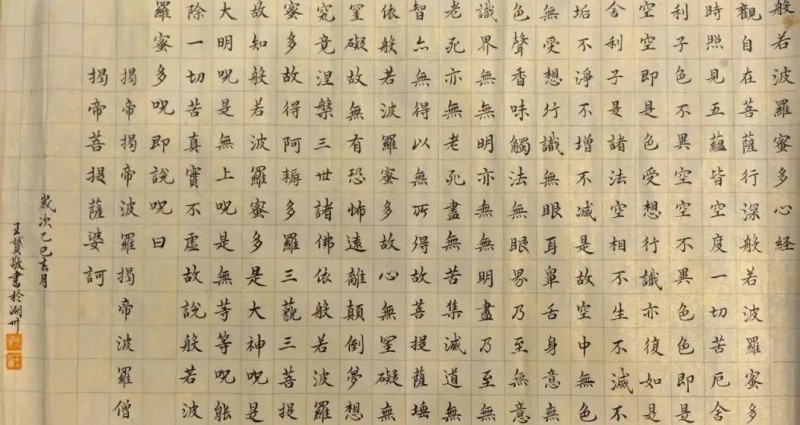 般若波羅蜜多心經
觀自在菩薩行深般若波羅蜜多
時照見五蘊皆空度一切苦厄舍
利子色不異空空不異色色即是
空空即是色受想行識亦復如是
舍利子是諸法空相不生不滅不
垢不淨不增不減是故空中無色
無受想行識無眼耳鼻舌身意無
色聲香味觸法無眼界乃至無意
識界無無明亦無無明盡乃至無
老死亦無老死盡無苦集滅道無
智亦無得以無所得故菩提薩埵
依般若波羅蜜多故心無罣礙無
罣礙故無有恐怖遠離顛倒夢想
究竟涅槃三世諸佛依般若波羅
蜜多故得阿耨多羅三藐三菩提
故知般若波羅蜜多是大神呪是
大明呪是無上呪是無等等呪能
除一切苦真實不虛故說般若波
羅蜜多呪即說呪曰
揭帝揭帝波羅揭帝波羅僧
揭帝菩提薩婆訶
歲次乙巳月
王敬書於湖州